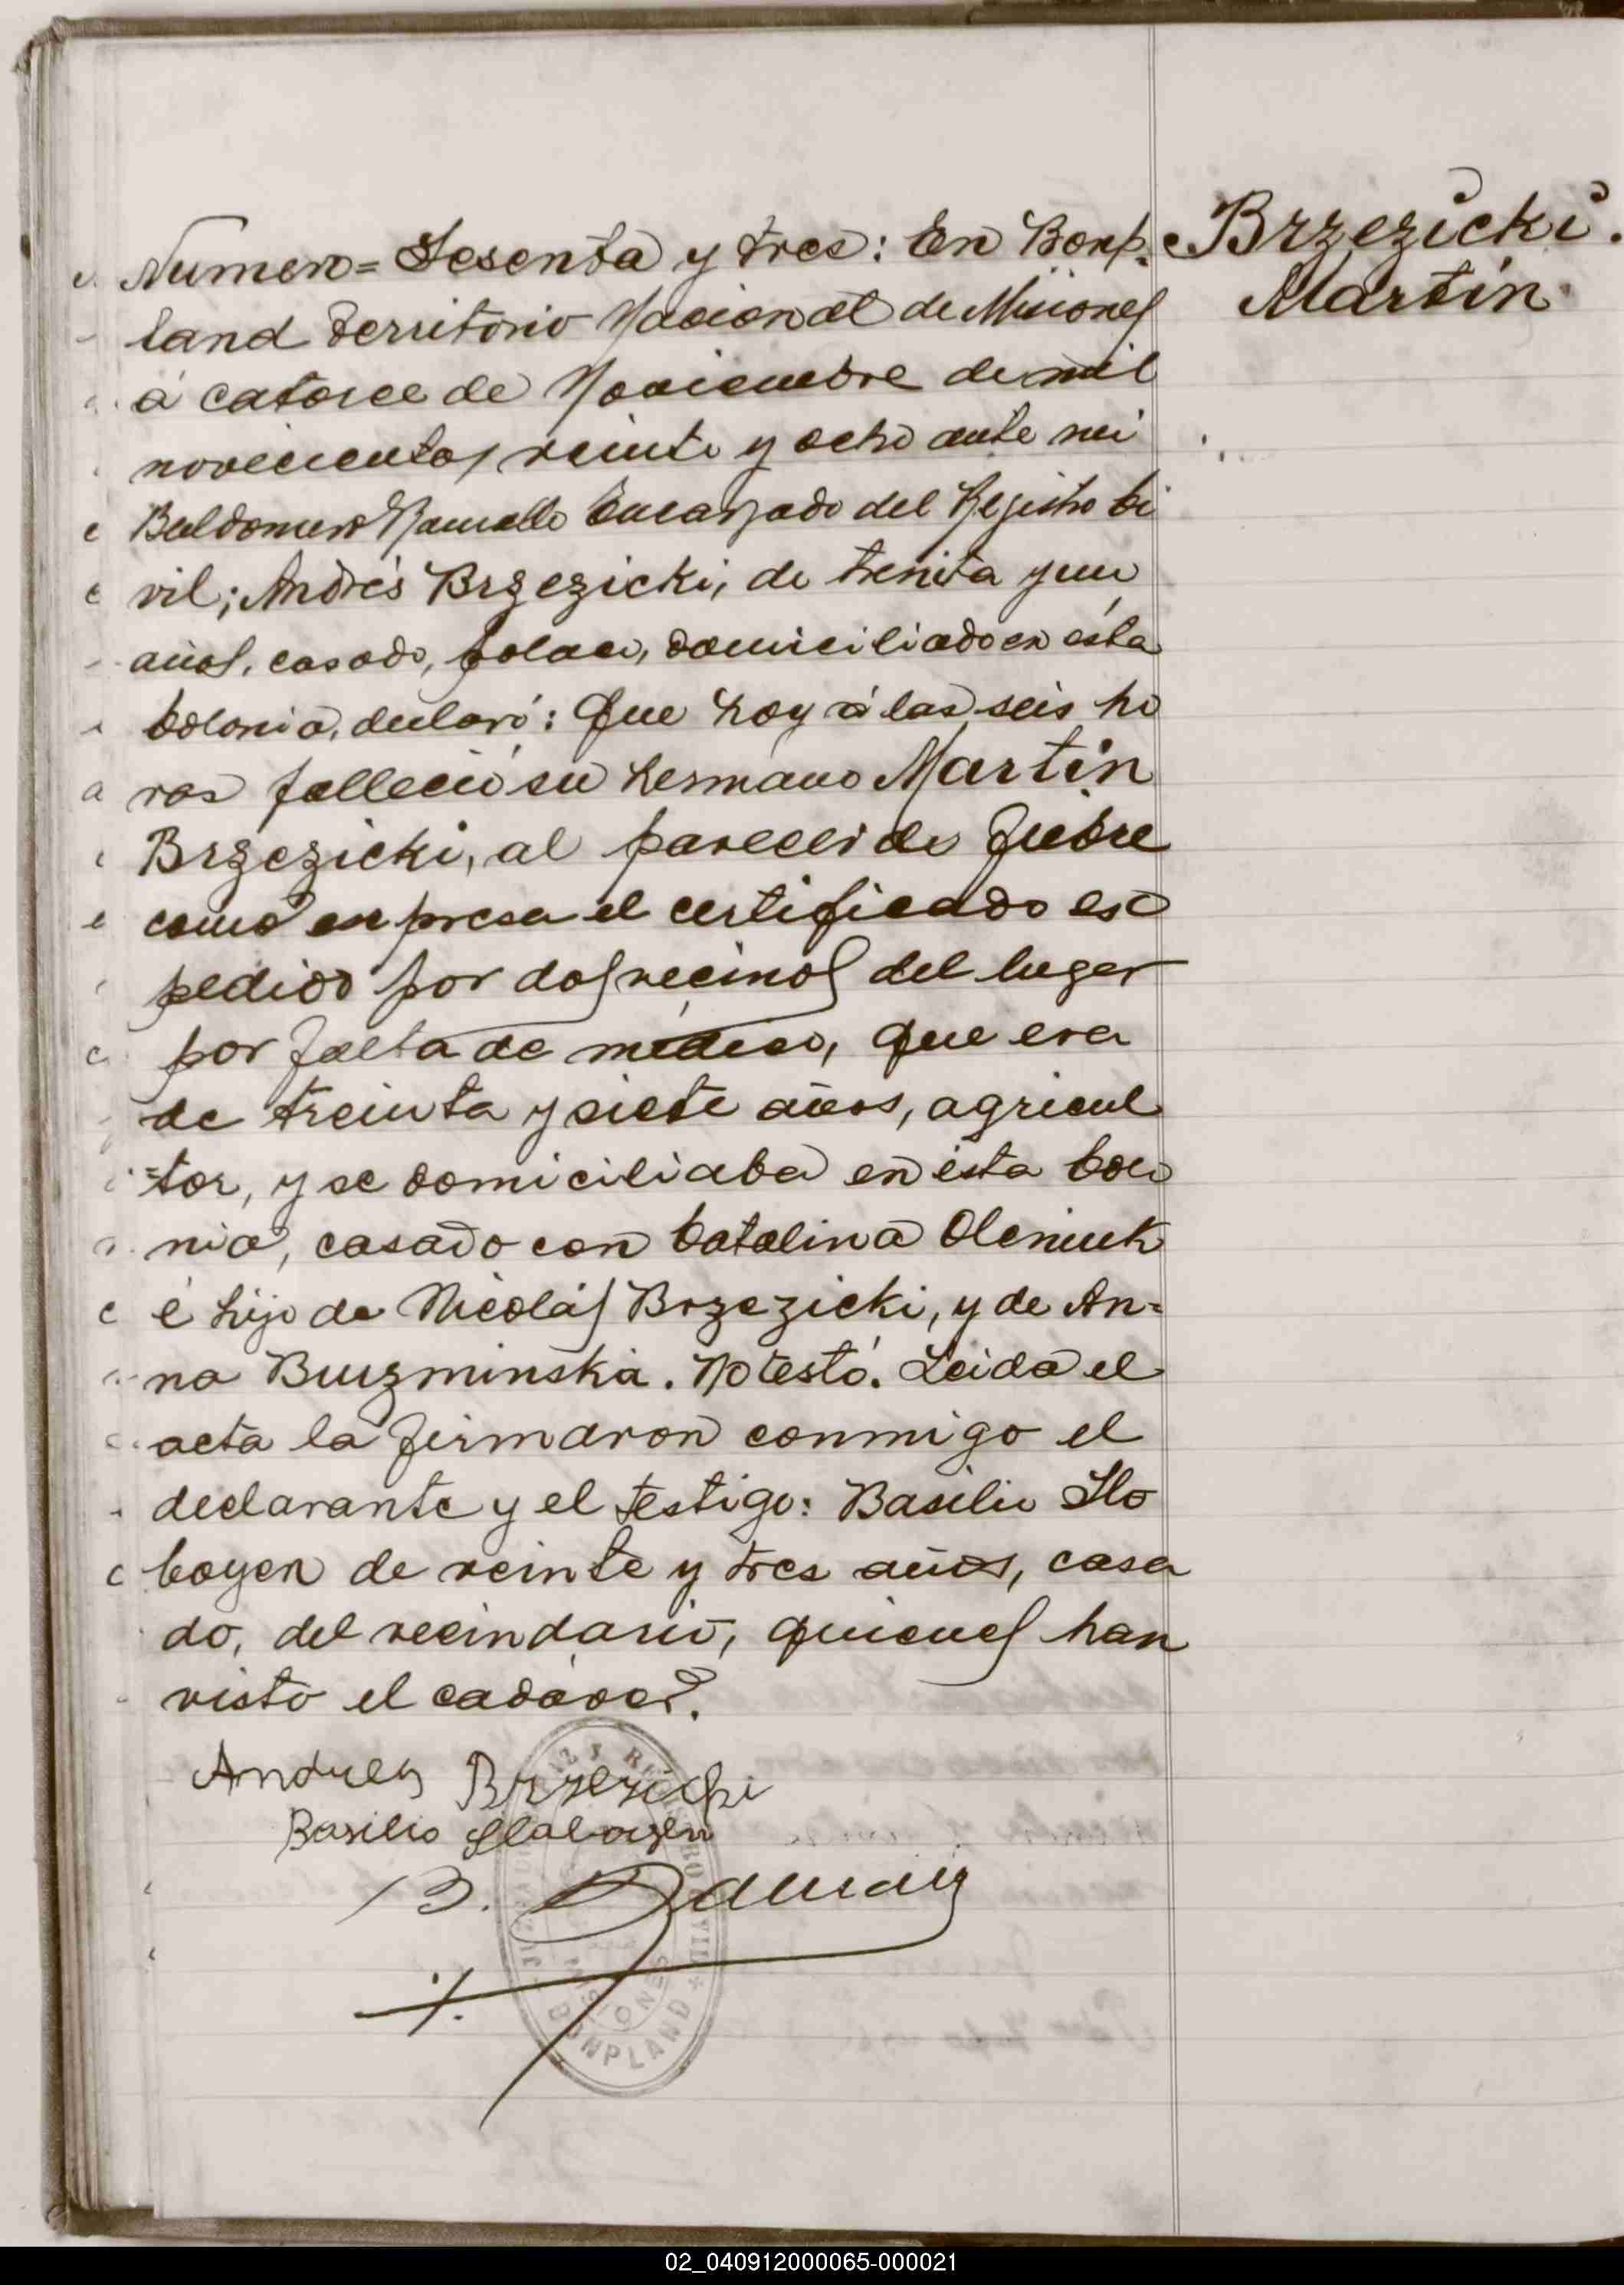 Brzezicki.
Martín.
Numero = Sesenta y tres: En Bonp
land Territorio Nacional de Misiones
á catorce de Noviembre de mil
novecientos veinte y ocho ante mi
Baldomero Encargado del Registro Ci
vil; Andrés Brzezicki, de treinta y un
años, casado, polaco, domiciliado en ésta
Colonia, declaró: Que hoy á las seis ho
ras falleció su hermano Martín
Brzezicki, al parecer de fiebre
como expresa el certificado es
pedido por dos vecinos del lugar
por falta de médico, que era
de treinta y siete años, agricul
tor, y se domiciliaba en ésta Colo
nia, casado con Catalina Oleniuk
é hijo de Nicolás Brzezicki, y de An=
na Buzminska. No testó. Leida el
acta la firmaron conmigo el
declarante y el testigo: Basilio Slo
boyen de veinte y tres años, casa
do, del vecindario, quienes han
visto el cadáver.
Andres Brzezicki
Basilio Slaboyen
B.
REGISTRO CIVIL
MISIONES
BONPLAND
02_040912000065-000021